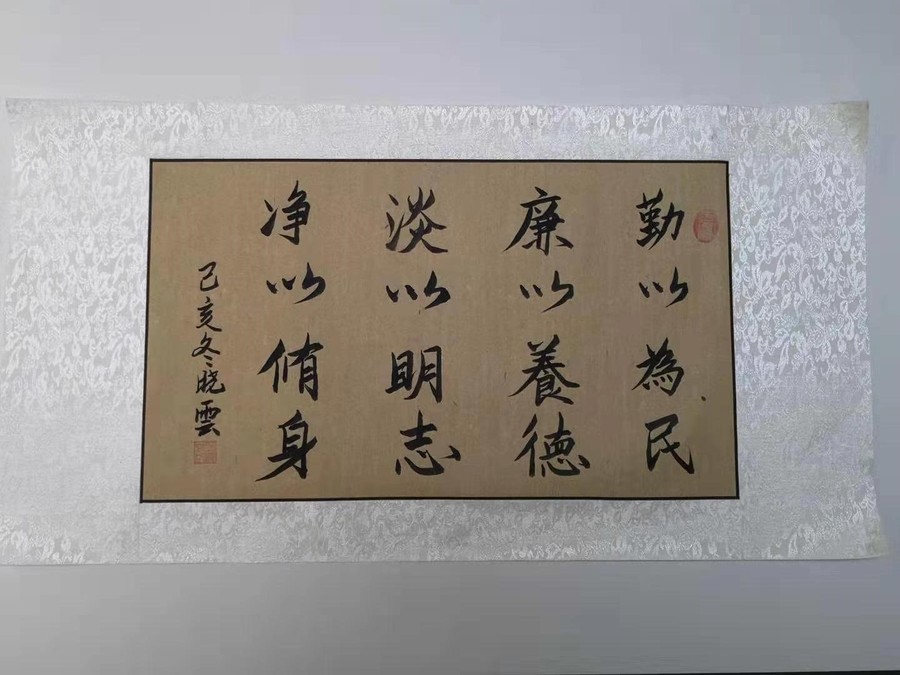 勤以為民
廉以養德
淡以明志
净以脩身
己亥冬晓雲